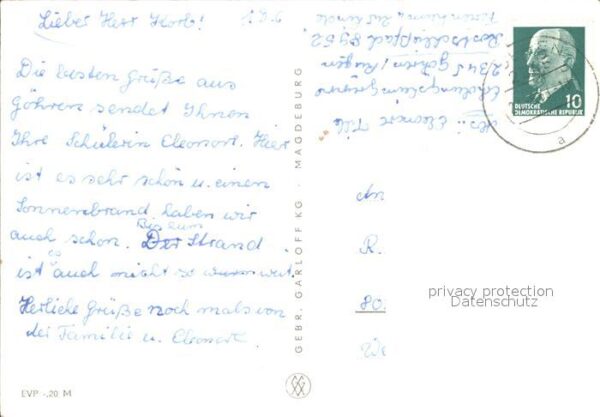 Lieber Herr Korb!
Die besten Grüße aus
Göhren sendet Ihnen
Ihre Schülerin Eleonore. Hier
ist es sehr schön u. einen
Sonnenbrand haben wir
auch schon. Bis zum Strand
ist es auch nicht so weit.
Herliche Grüße noch mals von
der Familie u. Eleonore.
EVP -,20 M
GEBR. GARLOFF KG · MAGDEBURG
Eleonore
2345 Göhren / Rügen
Postschließfach
DEUTSCHE
DEMOKRATISCHE REPUBLIK
10
a
An
R.
80
privacy protection
Datenschutz